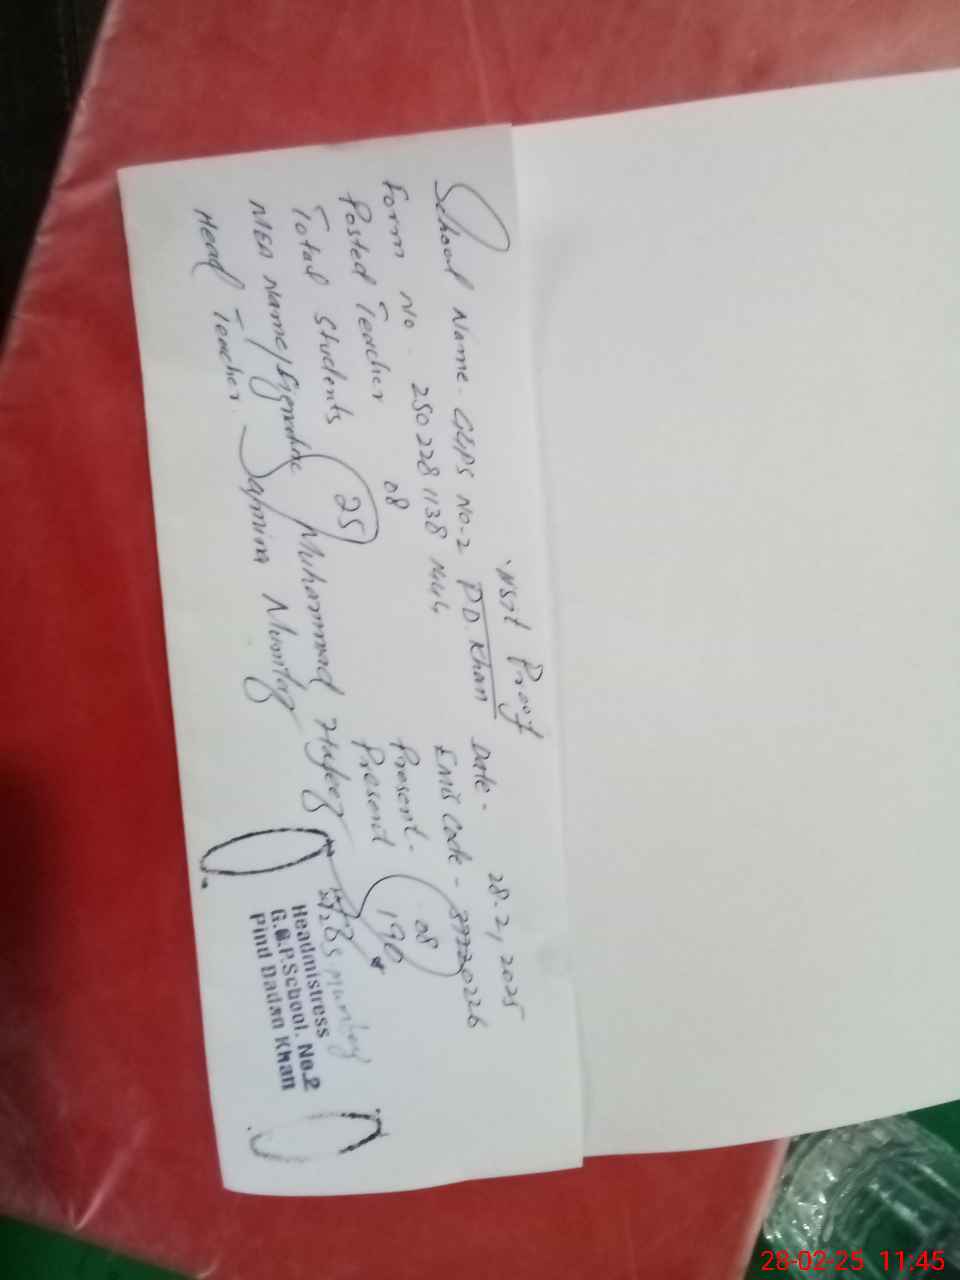 Visit Proof
School Name - GGPS No-2 P.D. Khan Date - 28.2, 2025
Form No - 250228 1138 1444 EMIS Code - 37220226
Posted Teacher 08 Present - 08
Total Students 251 Present 196
MEA Name/Signature Muhammad Hafeez
Head Teacher Samina Mumtaz
S. Mumtaz
Headmistress
G.G.P.School. No.2
Pind Dadan Khan
28-02-25 11:45